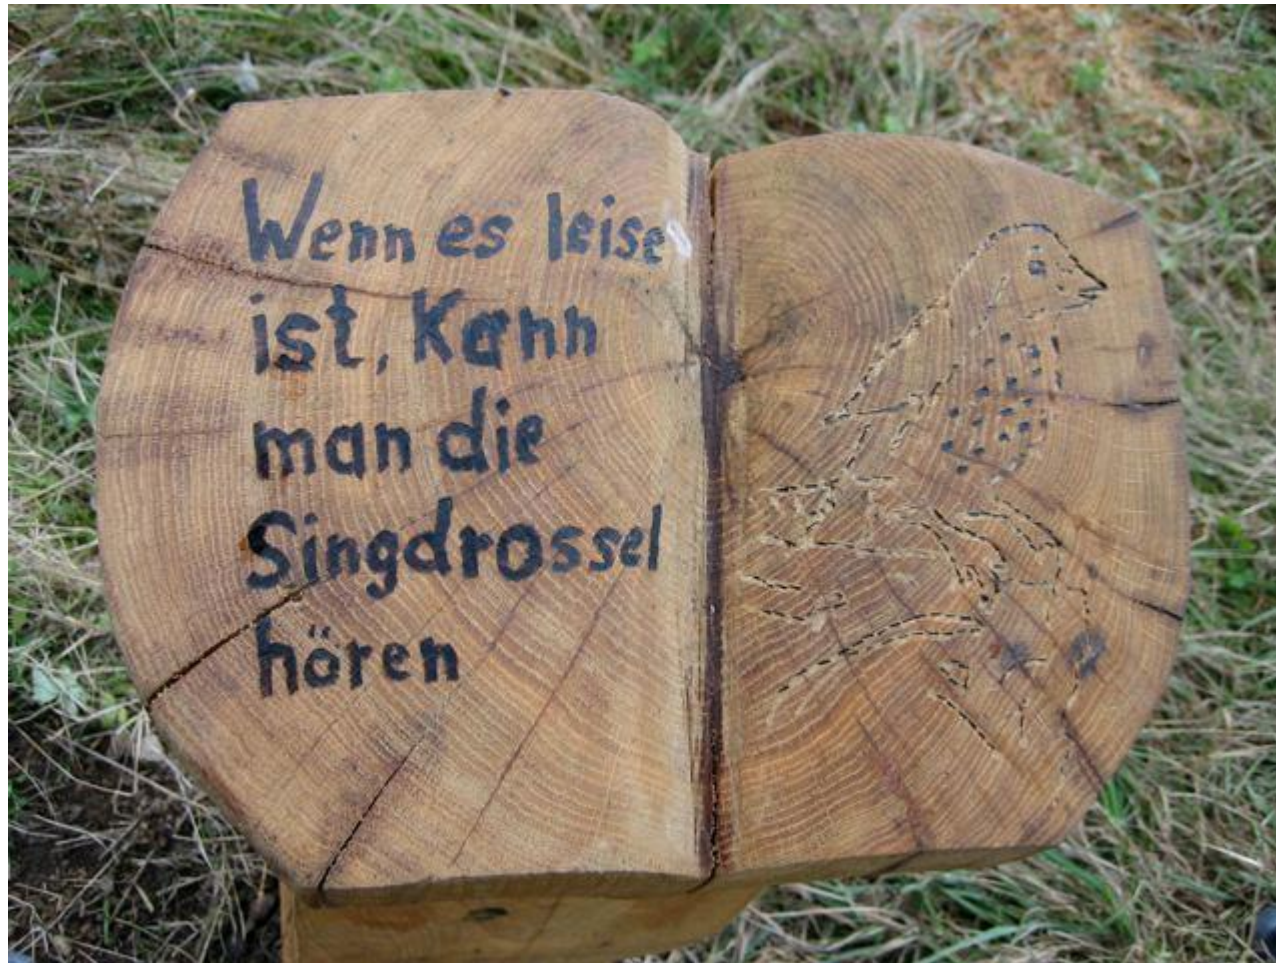 Wenn es leise
ist, Kann
man die
Singdrossel
hören